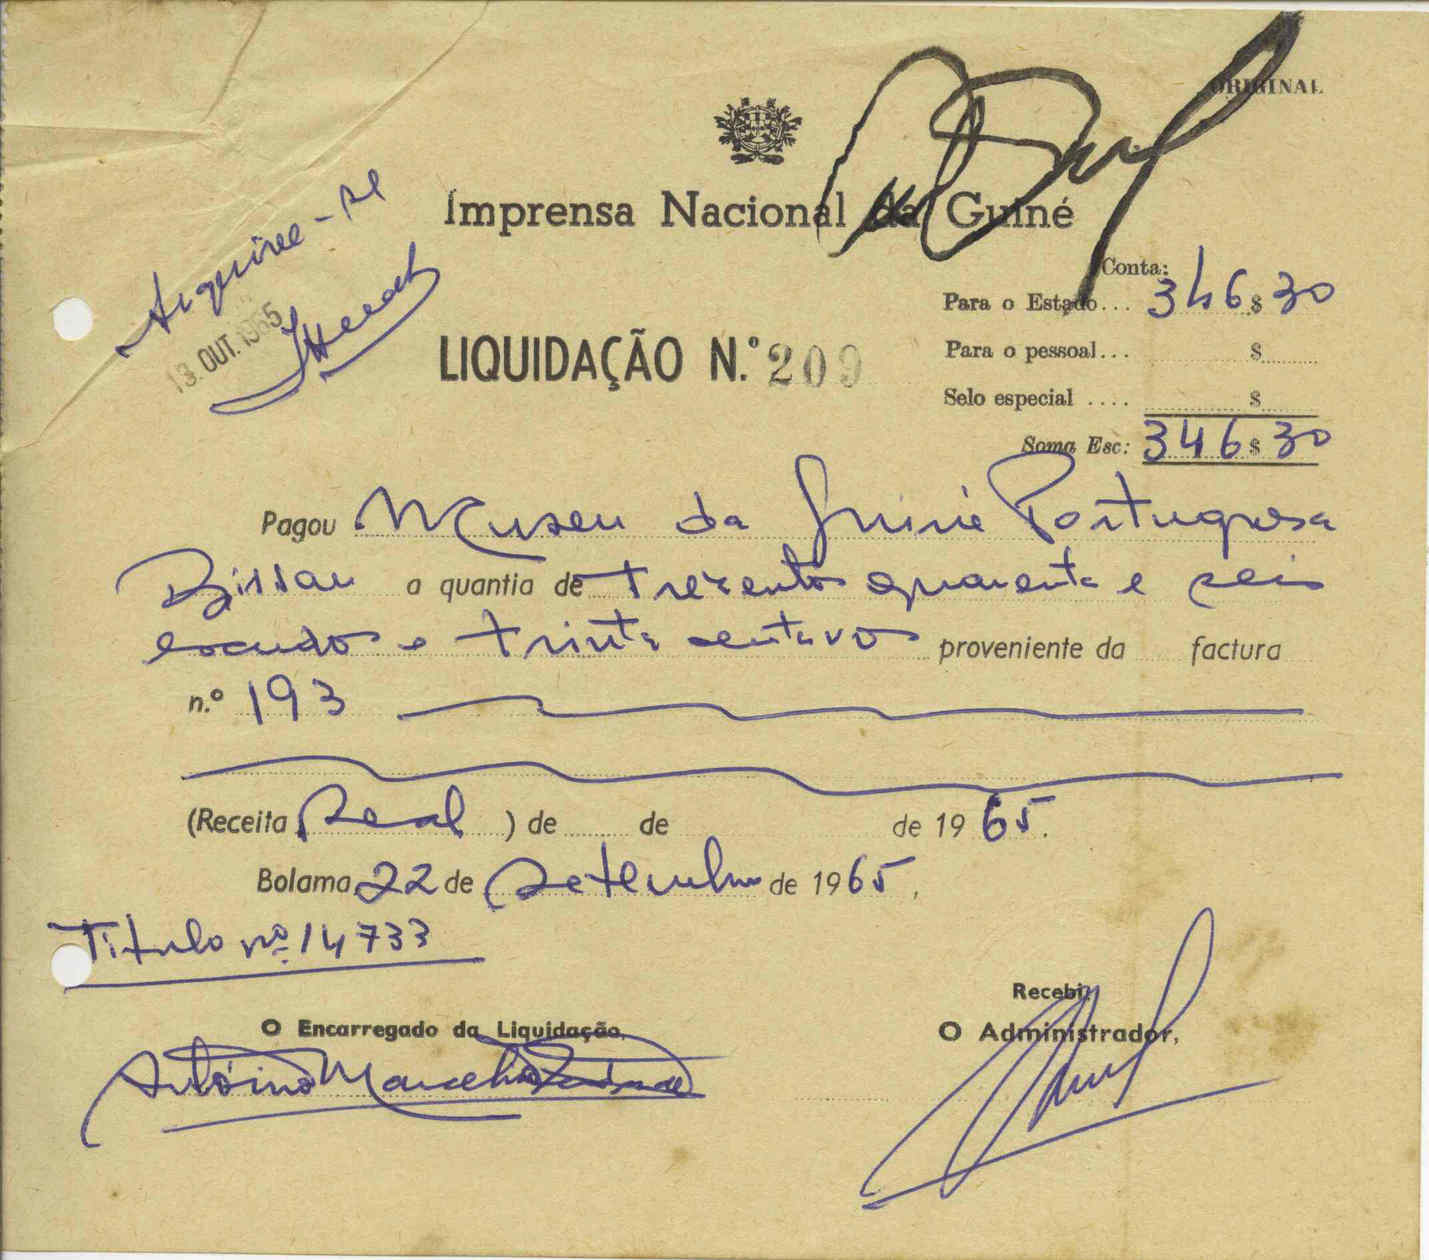 ORIGINAL
Imprensa Nacional da Guiné
Arquive-se
13. OUT. 1965
Conta:
Para o Estado... 346$30
Para o pessoal... $
Selo especial .... $
Soma Esc: 346$30
LIQUIDAÇÃO N.º 209
Pagou Museu da Guiné Portuguesa
Bissau a quantia de trezentos quarenta e seis
escudos e trinta centavos proveniente da factura
n.º 193
(Receita Real) de de de 1965.
Bolama 22 de Setembro de 1965,
Titulo nº 14733
Recebi,
O Encarregado da Liquidação,
O Administrador,
António Marcelino